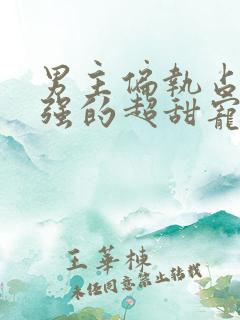 男主偏执占
强的超甜宠
王華棟
未经同意禁止转载